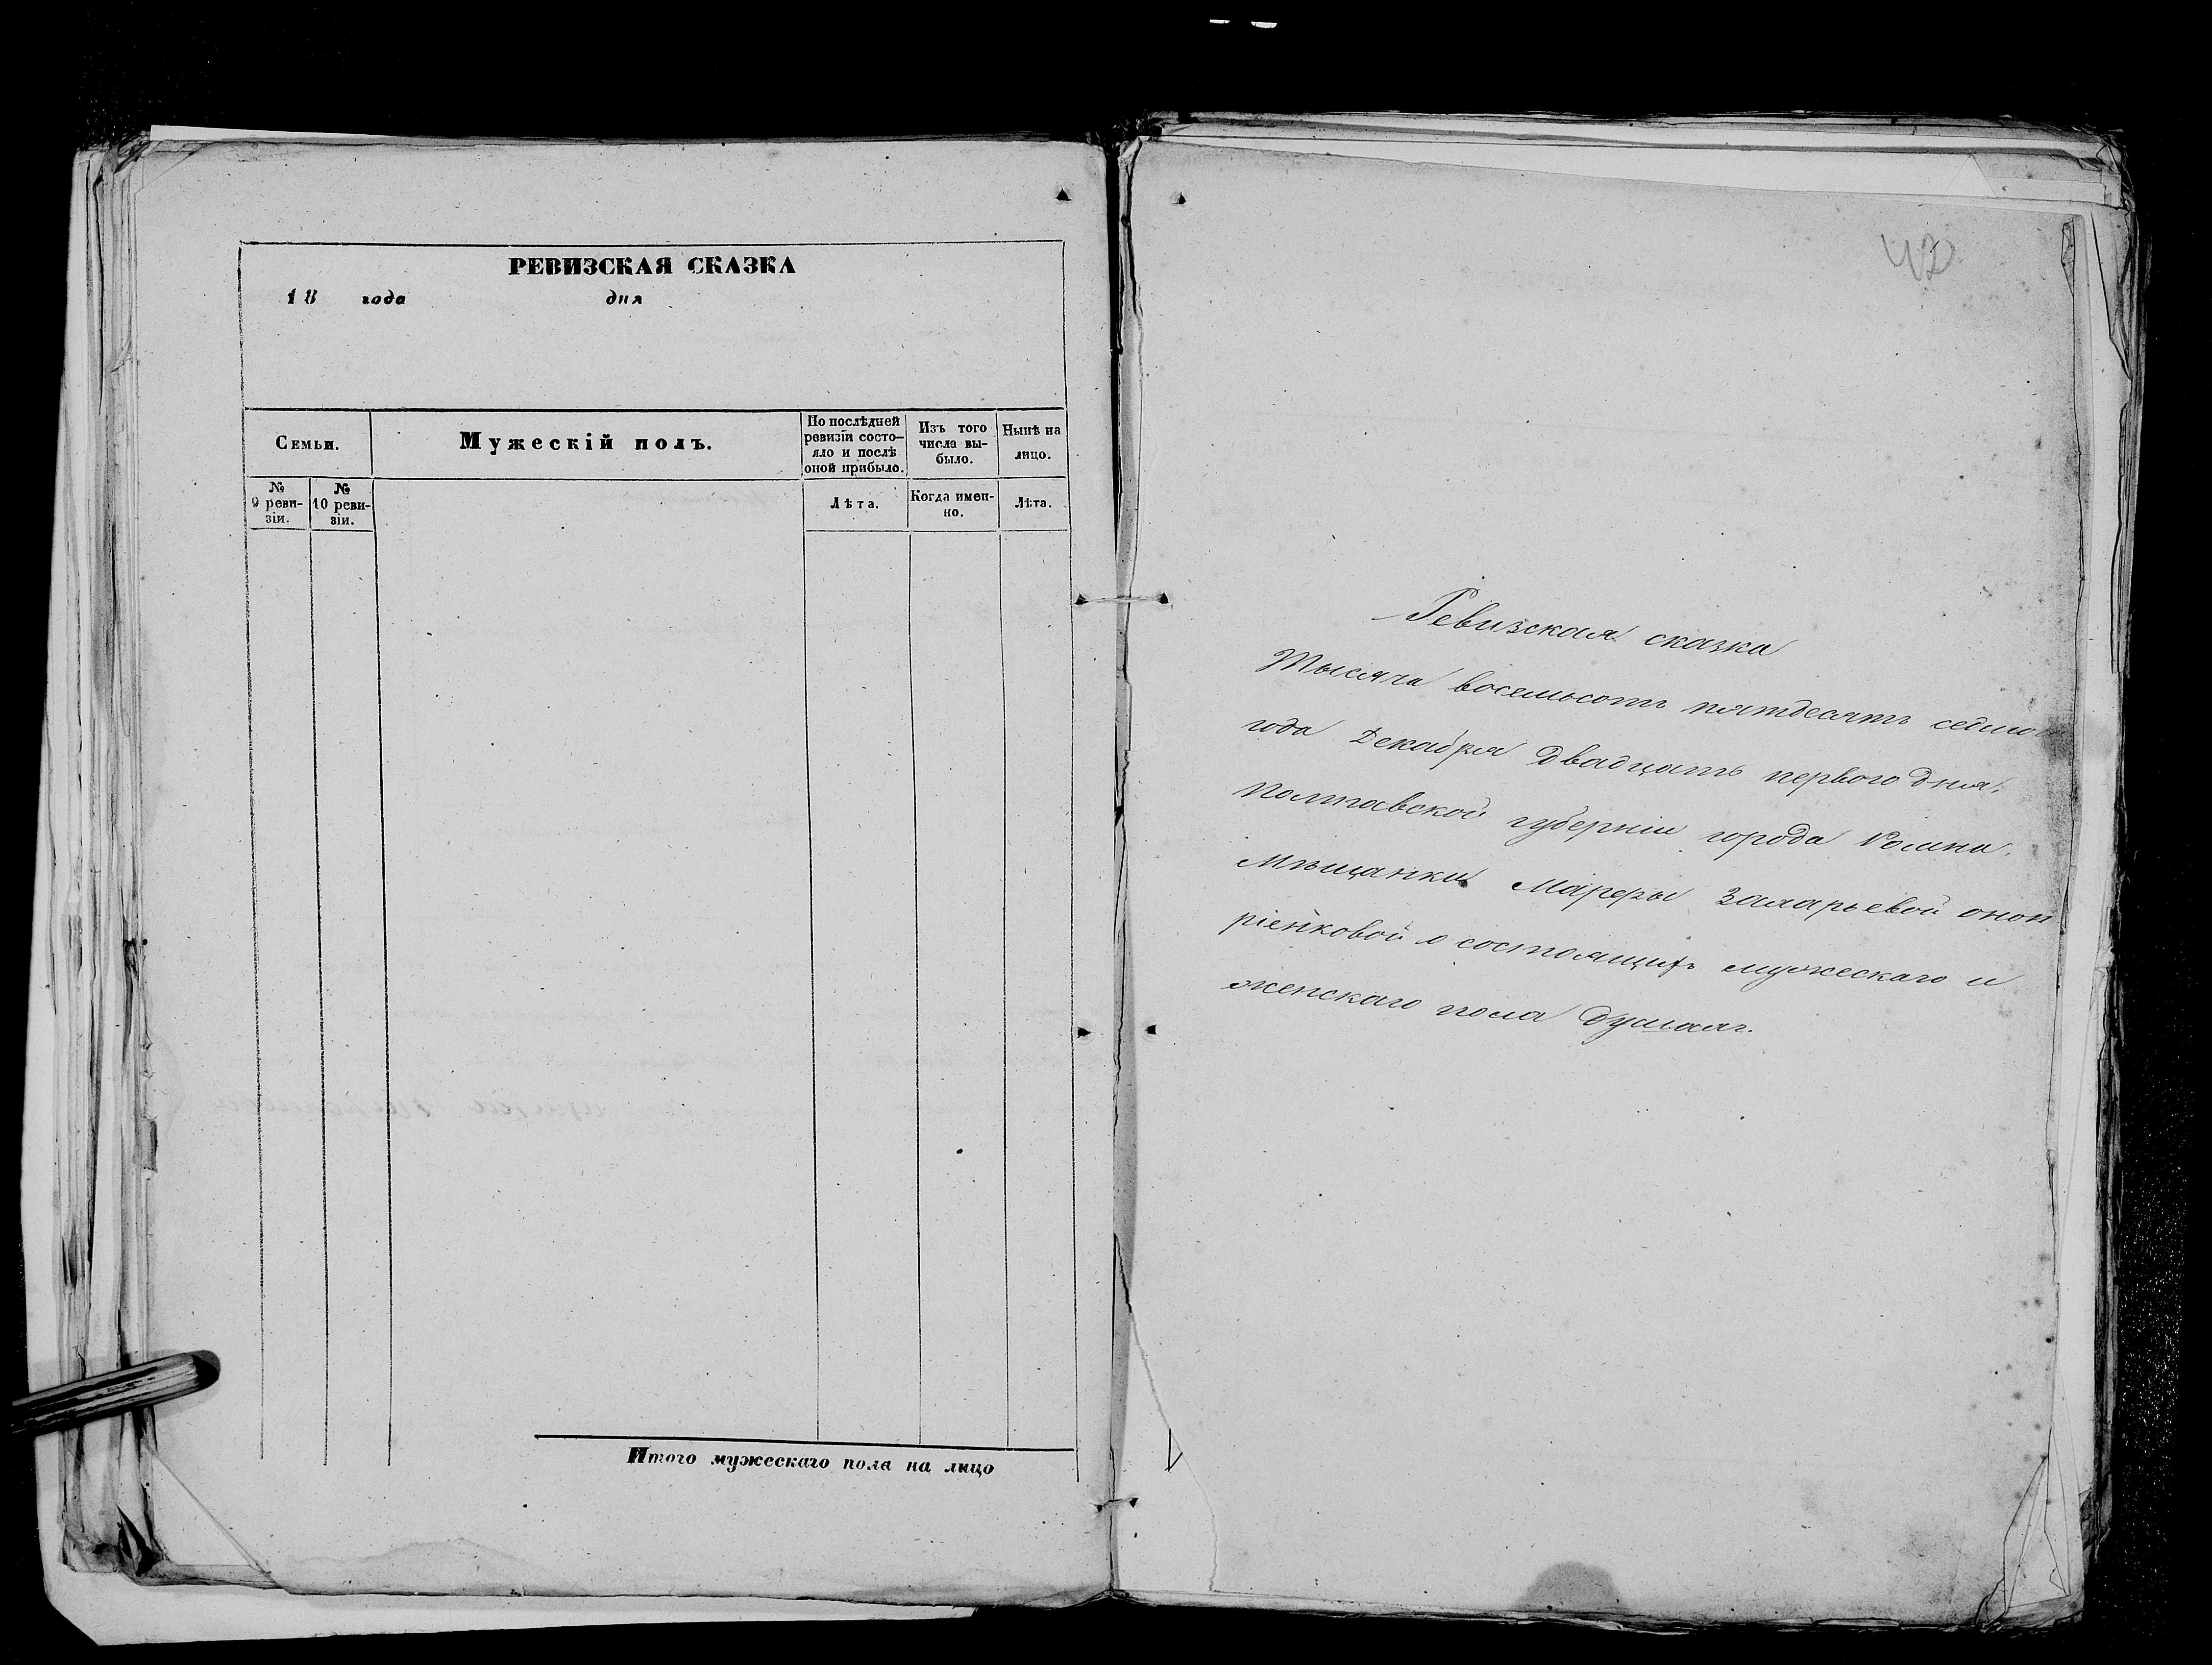 РЕВИЗСКАЯ СКАЗКА
18 года дня
Семьи.
Мужескій полъ.
По послѣдней
ревизіи состо-
яло и послѣ
оной прибыло.
Изъ того
числа вы-
было.
Нынѣ на
лицо.
№
9 реви-
зіи.
№
10 реви-
зіи.
Лѣта.
Когда имен-
но.
Лѣта.
Итого мужескаго пола на лицо
42
Ревизская сказка
Тысяча восемьсотъ пятдесятъ седмо
года Декабря Двадцать перваго дня,
Полтавской губерніи города Ромна,
Мѣщанки Марфы Захарьевой оноп
ріенковой о состоящихъ мужескаго и
женскаго пола душахъ.